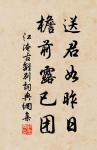 送君如昨日
檐前露已团
江淹古離别詞典網集